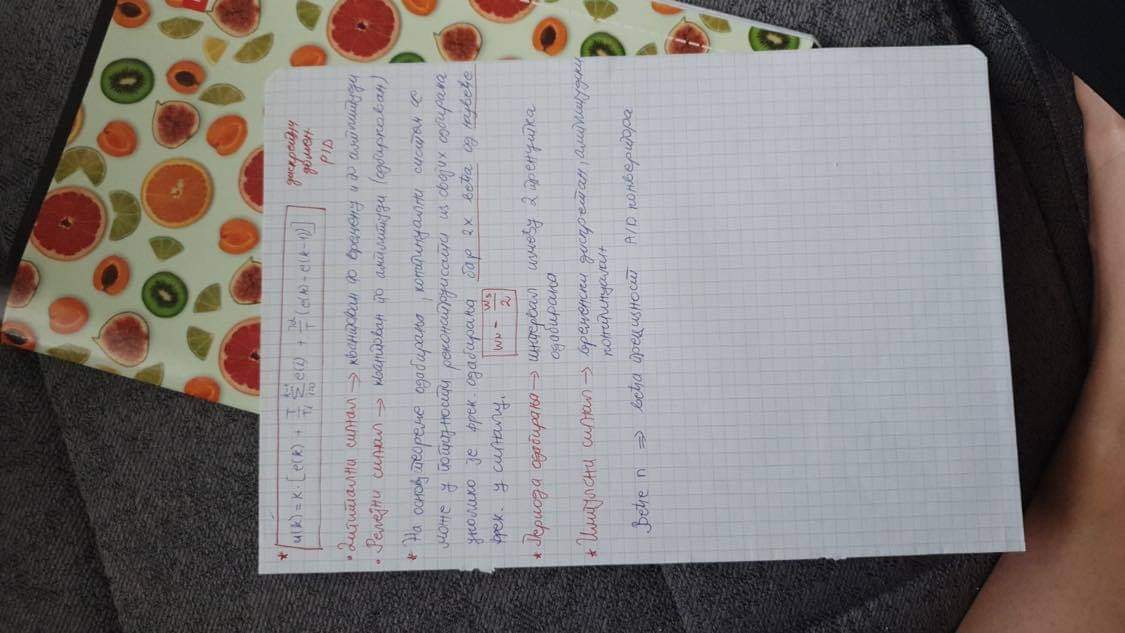 * u(k) = K · [e(k) + T/Ti Σ e(i) + Td/T (e(k) - e(k-1))] дискретни
домен
PID
• Дигитални сигнал → квантован по времену и по амплитуди
• Релејни сигнал → квантован по амплитуди (одбиркован)
* На основу теореме одабирања, континуални систем се
може у потпуности реконструисати из својих одбирака
уколико је фрек. одабирања бар 2x већа од највеће
фрек. у сигналу. ωN = ωs/2
* Периода одабирања → интервал између 2 тренутка
одабирања
* Импулсни сигнал → временски дискретан, амплитудски
континуалан
Веће n ⇒ већа прецизност A/D конвертора